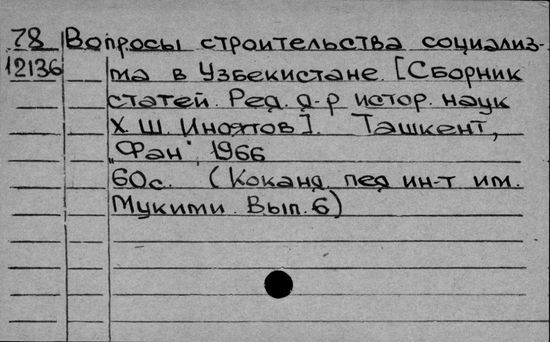 78 Вопросы строительства социализ-
12136 ма в Узбекистане. [Сборник
статей. Ред. д-р истор. наук
Х.Ш. Иноятов]. Ташкент,
"Фан", 1966
60с. (Коканд. пед ин-т им.
Мукими. Вып. 6)